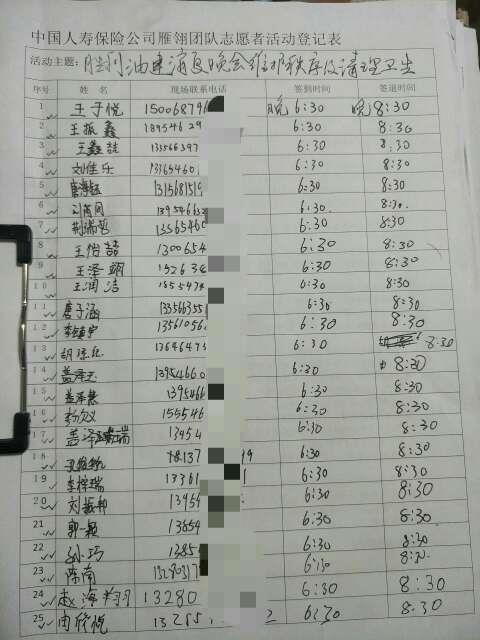 中国人寿保险公司雁翎团队志愿者活动登记表
活动主题: 胜利油建消夏晚会维护秩序及清理卫生
序号 姓 名 现场联系电话 签到时间 签退时间
1 王子悦 150068794 晚6:30 晚8:30
2 王振鑫 189546 29 6:30 8:30
3 王鑫喆 133566397 6:30 8:30
4 刘佳乐 133654601 6:30 8:30
5 1315681519 6:30 8:30
6 1395466 6:30 8:30
7 荆瑞哲 13365460 6:30 8:30
8 王怡喆 1300654 6:30 8:30
9 王泽翊 152636 6:30 8:30
10 王润洁 1855478 6:30 8:30
11 唐子涵 133566355 6:30 8:30
12 李镇宇 13561056 6:30 8:30
13 胡 13646475 6:30 8:30
14 盖泽玉 13954660 6:30 8:30
15 盖泽慧 1395466 6:30 8:30
16 杨欠义 155546 6:30 8:30
17 盖泽瑞 13454 6:30 8:30
18 18137 19 6:30 8:30
19 李梓瑞 13361 1 6:30 8:30
20 刘振邦 13954 6:30 8:30
21 郭颖 13654 6:30 8:30
22 孙巧 1385 6:30 8:30
23 陈南 13280317 6:30 8:30
24 赵海翔 13280 6:30 8:30
25 由欣悦 13285 2 6:30 8:30